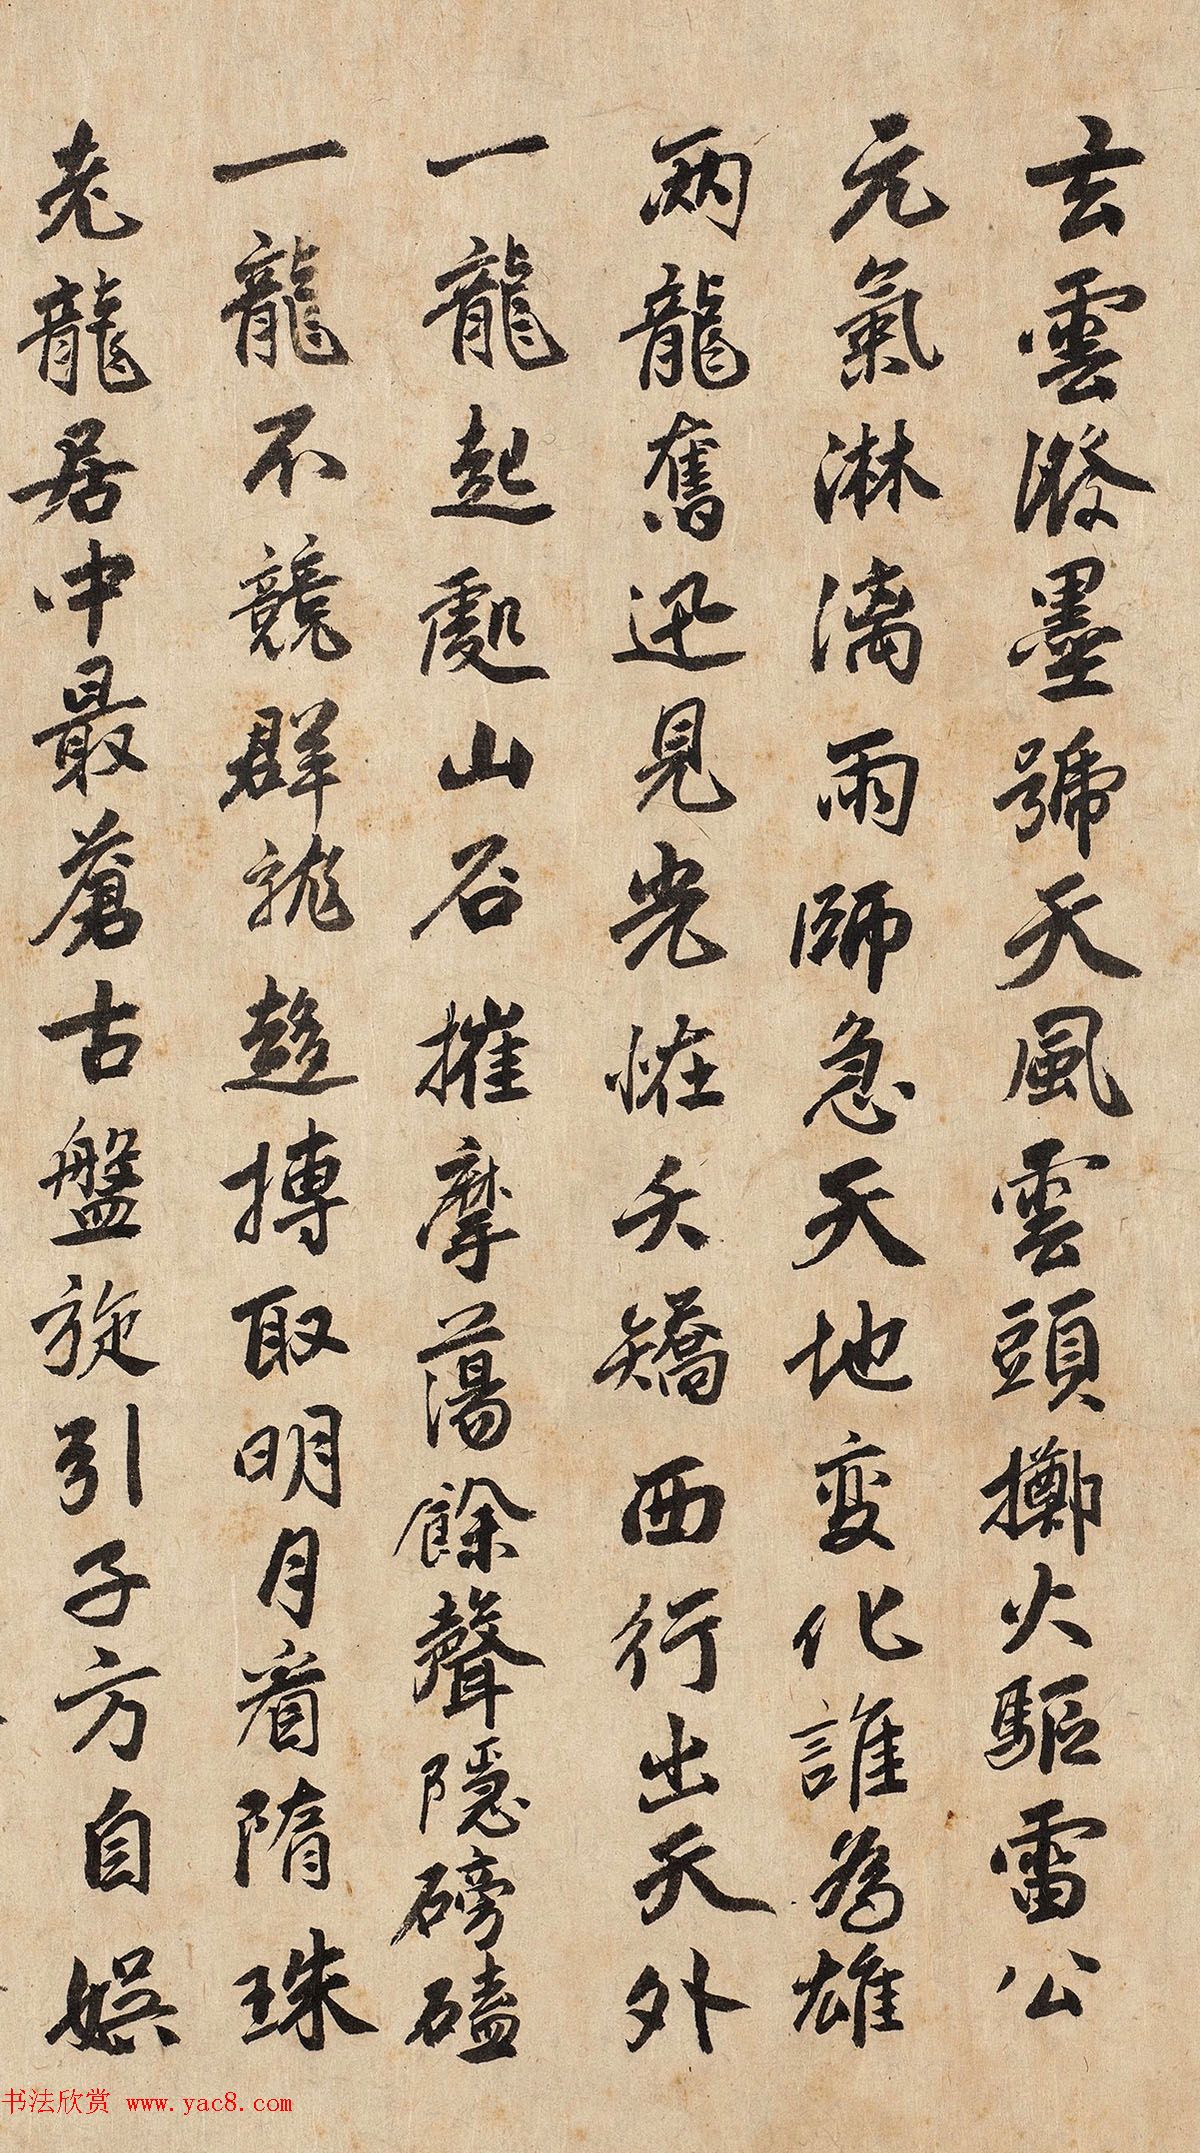 玄雲潑墨號天風雲頭擲火驅雷公
元氣淋漓雨師急天地變化誰為雄
兩龍奮迅見光怪夭矯西行出天外
一龍起處山石摧摩蕩餘聲隱磅磕
一龍不競群龍趨搏取明月看隋珠
老龍居中最蒼古盤旋引子方自娛
书法欣赏 www.yac8.com